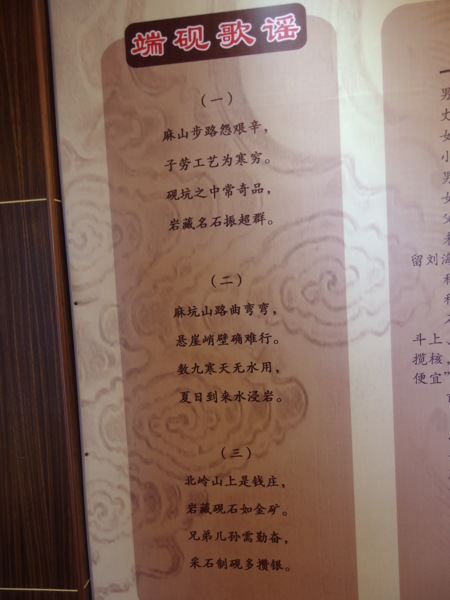 端砚歌谣
（一）
麻山步路怨艰辛，
子劳工艺为寒穷。
砚坑之中常奇品，
岩藏名石振超群。
（二）
麻坑山路曲弯弯，
悬崖峭壁确难行。
数九寒天无水用，
夏日到来水浸岩。
（三）
北岭山上是钱庄，
岩藏砚石如金矿。
兄弟儿孙需勤奋，
采石制砚多攒银。
男
女
小
男
女
父
留刘海
斗上、
揽核，
便宜”